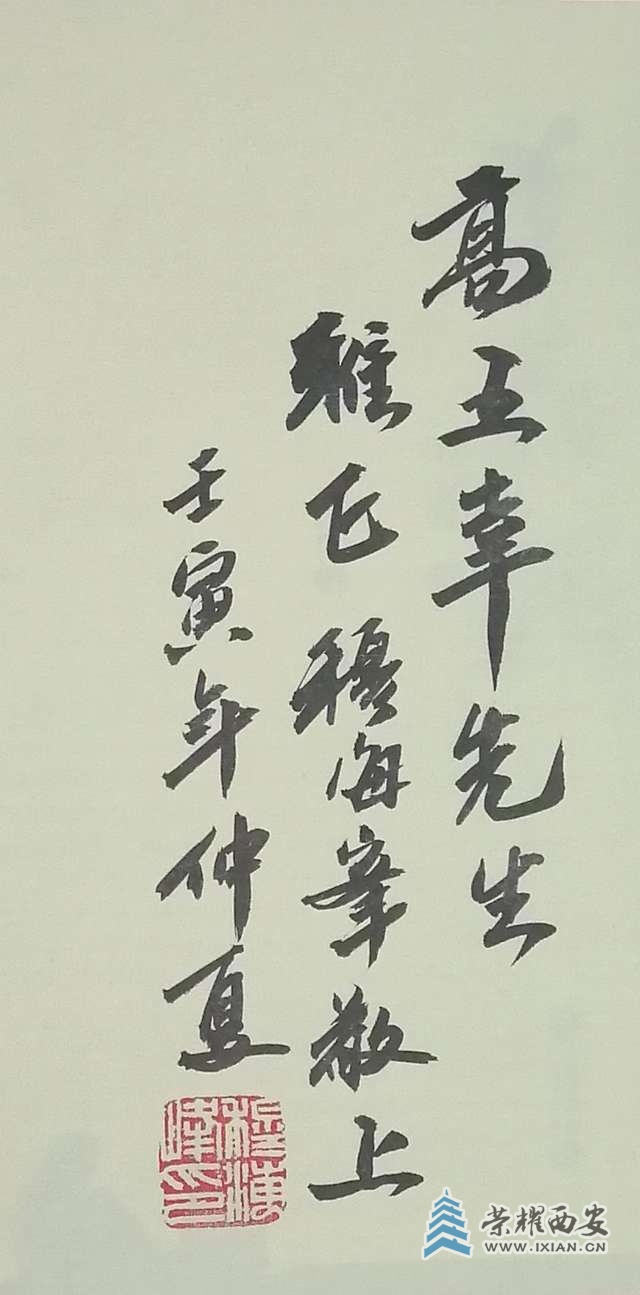 高五幸先生
雅正 穆海峯敬上
壬寅年仲夏
穆海峰印
荣耀西安
WWW.IXIAN.CN